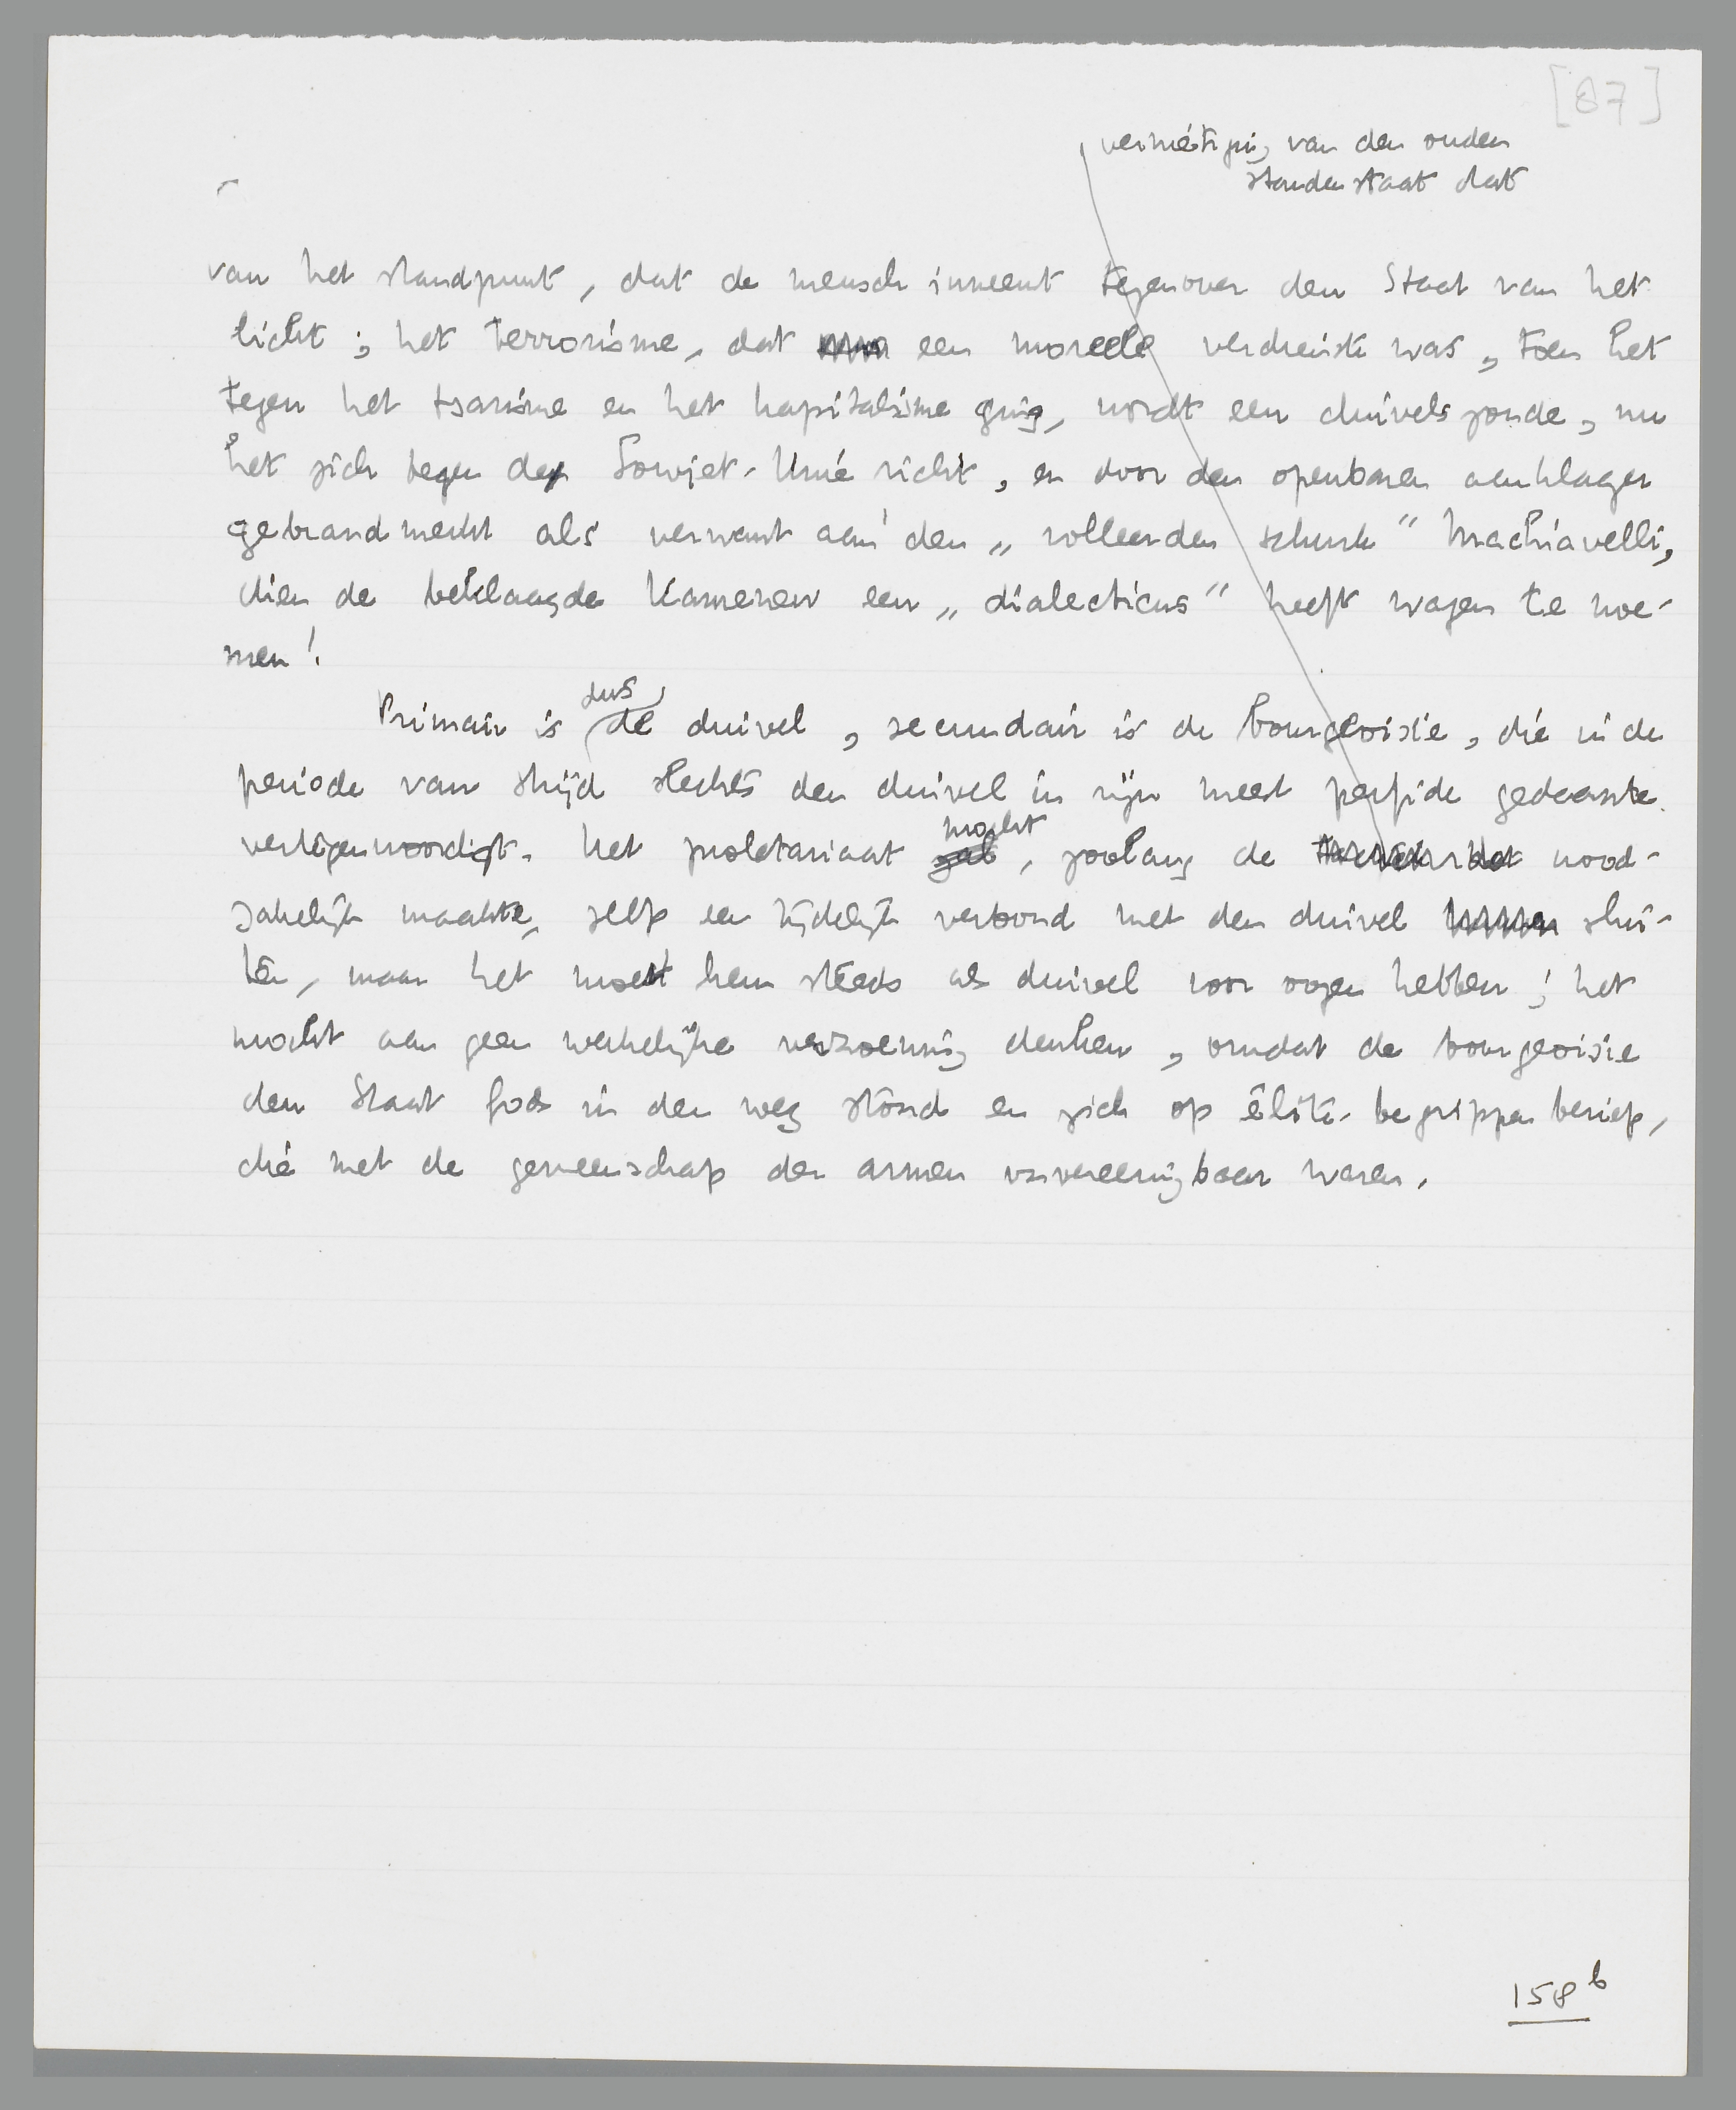 [87]
vernietiging van den ouden
standenstaat dat
van het standpunt, dat de mensch inneemt tegenover den Staat van het
licht; het terrorisme, dat een moreele verdienste was, toen het
tegen het tsarisme en het kapitalisme ging, wordt een duivelszonde, nu
het zich tegen de Sowjet-Unie richt, en door den openbaren aanklager
gebrandmerkt als verwant aan den „rolleerden schurk” Machiavelli,
dien de beklaagde Kamenew een „dialecticus” heeft wagen te noe-
men!
dus
Primair is de duivel, secundair is de bourgeoisie, die in de
periode van strijd slechts den duivel in zijn meest perfide gedaante
mocht
vertegenwoordigt. Het proletariaat zal, zoolang de nood-
zakelijk maakte, zelfs een tijdelijk verbond met den duivel slui-
ten, maar het moest hem steeds als duivel voor oogen hebben; het
mocht aan geen werkelijke verzoening denken, omdat de bourgeoisie
den Staat Gods in den weg stond en zich op élite-begrippen beriep,
die met de gemeenschap der armen onvereenigbaar waren.
158b